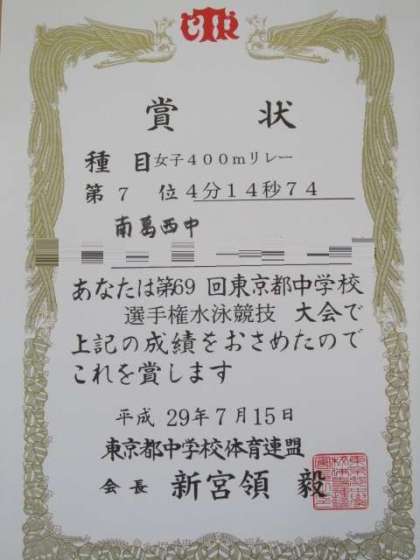 賞 状
種 目 女子400mリレー
第 7 位 4分14秒74
南葛西中
あなたは第69 回東京都中学校
選手権水泳競技 大会で
上記の成績をおさめたので
これを賞します
平成 29年7月15日
東京都中学校体育連盟
会長 新宮領 毅